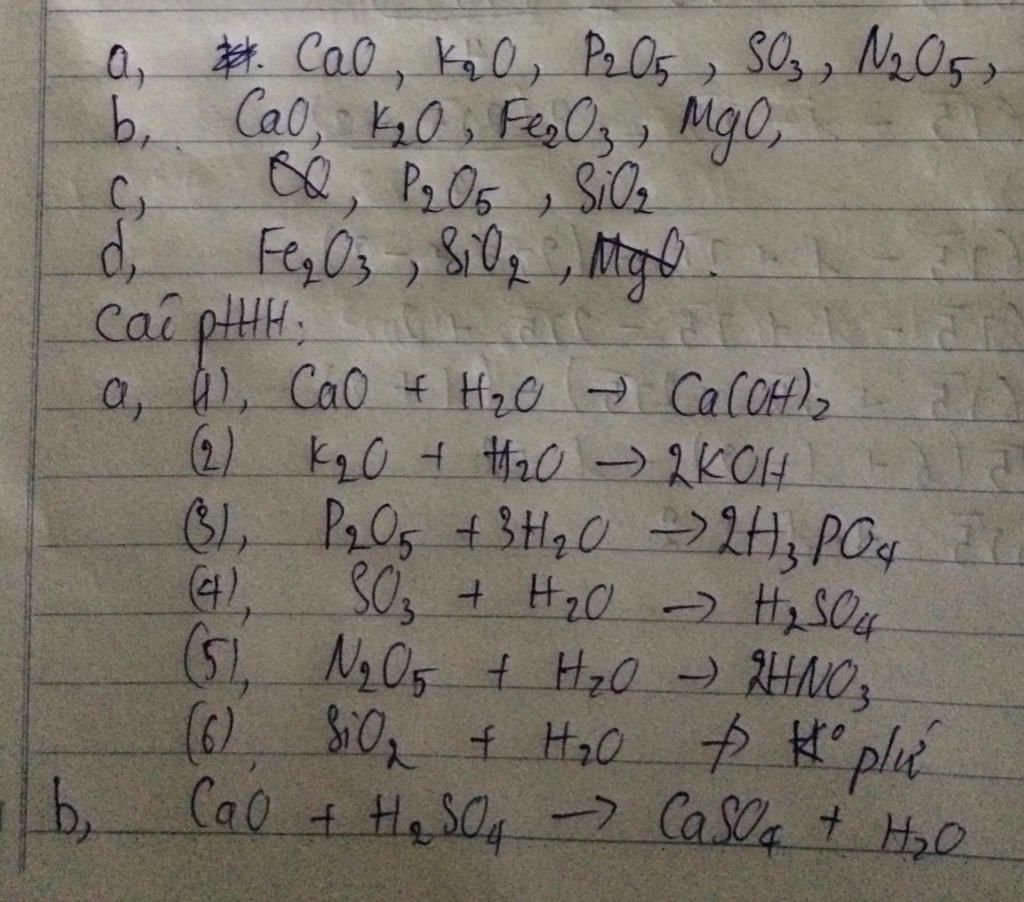 a, CaO, K₂O, P₂O₅, SO₃, N₂O₅,
b, CaO, K₂O, Fe₂O₃, MgO,
c, P₂O₅, SiO₂
d, Fe₂O₃, SiO₂, MgO.
Các pHHH:
a, (1), CaO + H₂O → Ca(OH)₂
(2) K₂O + H₂O → 2KOH
(3), P₂O₅ + 3H₂O → 2H₃PO₄
(4), SO₃ + H₂O → H₂SO₄
(5), N₂O₅ + H₂O → 2HNO₃
(6), SiO₂ + H₂O ↛ K° p/ứ
b, CaO + H₂SO₄ → CaSO₄ + H₂O